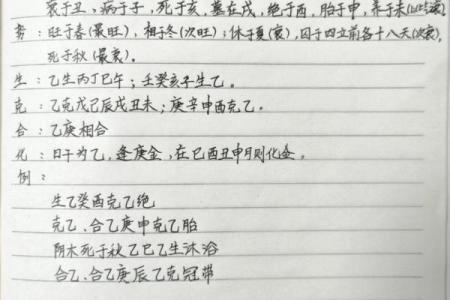 衰于丑、病于子，死于亥，墓在戌，绝于酉，胎于申，养于未
势：旺于春(最旺)，相于冬(次旺)；休于夏(衰)，囚于四立前各十八天(次衰)，
死于秋(最衰)。
生：乙生丙丁巳午；壬癸亥子生乙。
克：乙克戊己辰戌丑未；庚辛申酉克乙。
合：乙庚相合
化：日干为乙，逢庚金，在巳酉丑申月则化金。
例：
生乙癸酉克乙绝
克乙、合乙庚申克乙胎
阴木死于秋乙巳乙生沐浴
合乙、合乙庚辰乙克冠带